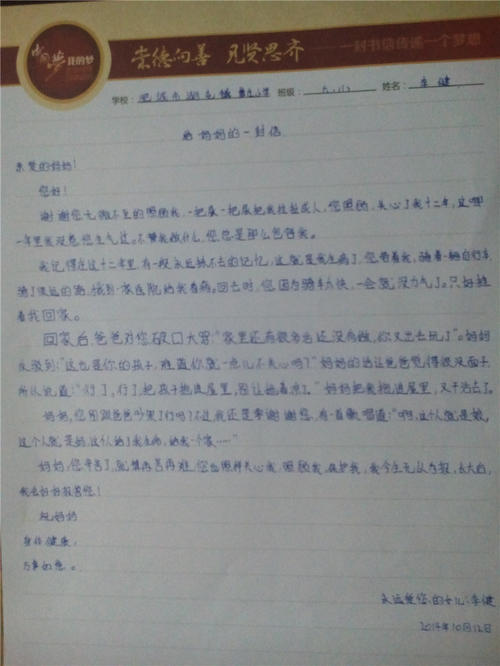 中国梦 我的梦
崇德向善 见贤思齐
一封书信传递一个梦想
学校: 肥城市湖屯镇 小学 班级: 六. 姓名: 李健
给妈妈的一封信
亲爱的妈妈!
您好!
谢谢您无微不至的照顾我,一把屎一把尿把我拉扯成人,您照顾,关心了我十二年,这哪
一年里我没惹您生气过。不管我做什么,您总是那么包容我。
我记得在这十二年里,有一段永远抹不去的记忆,这就是我生病了,您带着我,骑着一辆自行车,
骑了很远的路,找到一家医院给我看病。回去时,您因为骑车太快,一会就没力气了。只好推
着我回家。
回家后,爸爸对您破口大骂:“家里还有很多活还没有做,你又出去玩了”。妈妈
反驳到:“这也是你的孩子,难道你就一点儿不关心吗?”妈妈的话让爸爸觉得很没面子,
所以说道:“行了,行了,把孩子抱进屋里,别让她着凉了。”妈妈把我抱进屋里,又干活去了。
妈妈,您别跟爸爸吵架了行吗?不过我还是要谢谢您,有一首歌唱道:“啊,这个人就是娘,
这个人就是妈,这个人给了我生命,给我一个家……”
妈妈,您辛苦了,就算再苦再难,您也照样关心我,照顾我,保护我,我今生无以为报,长大后,
我会好好报答您!
祝妈妈
身体健康,
万事如意。
永远爱您的女儿:李健
2014年10月12日